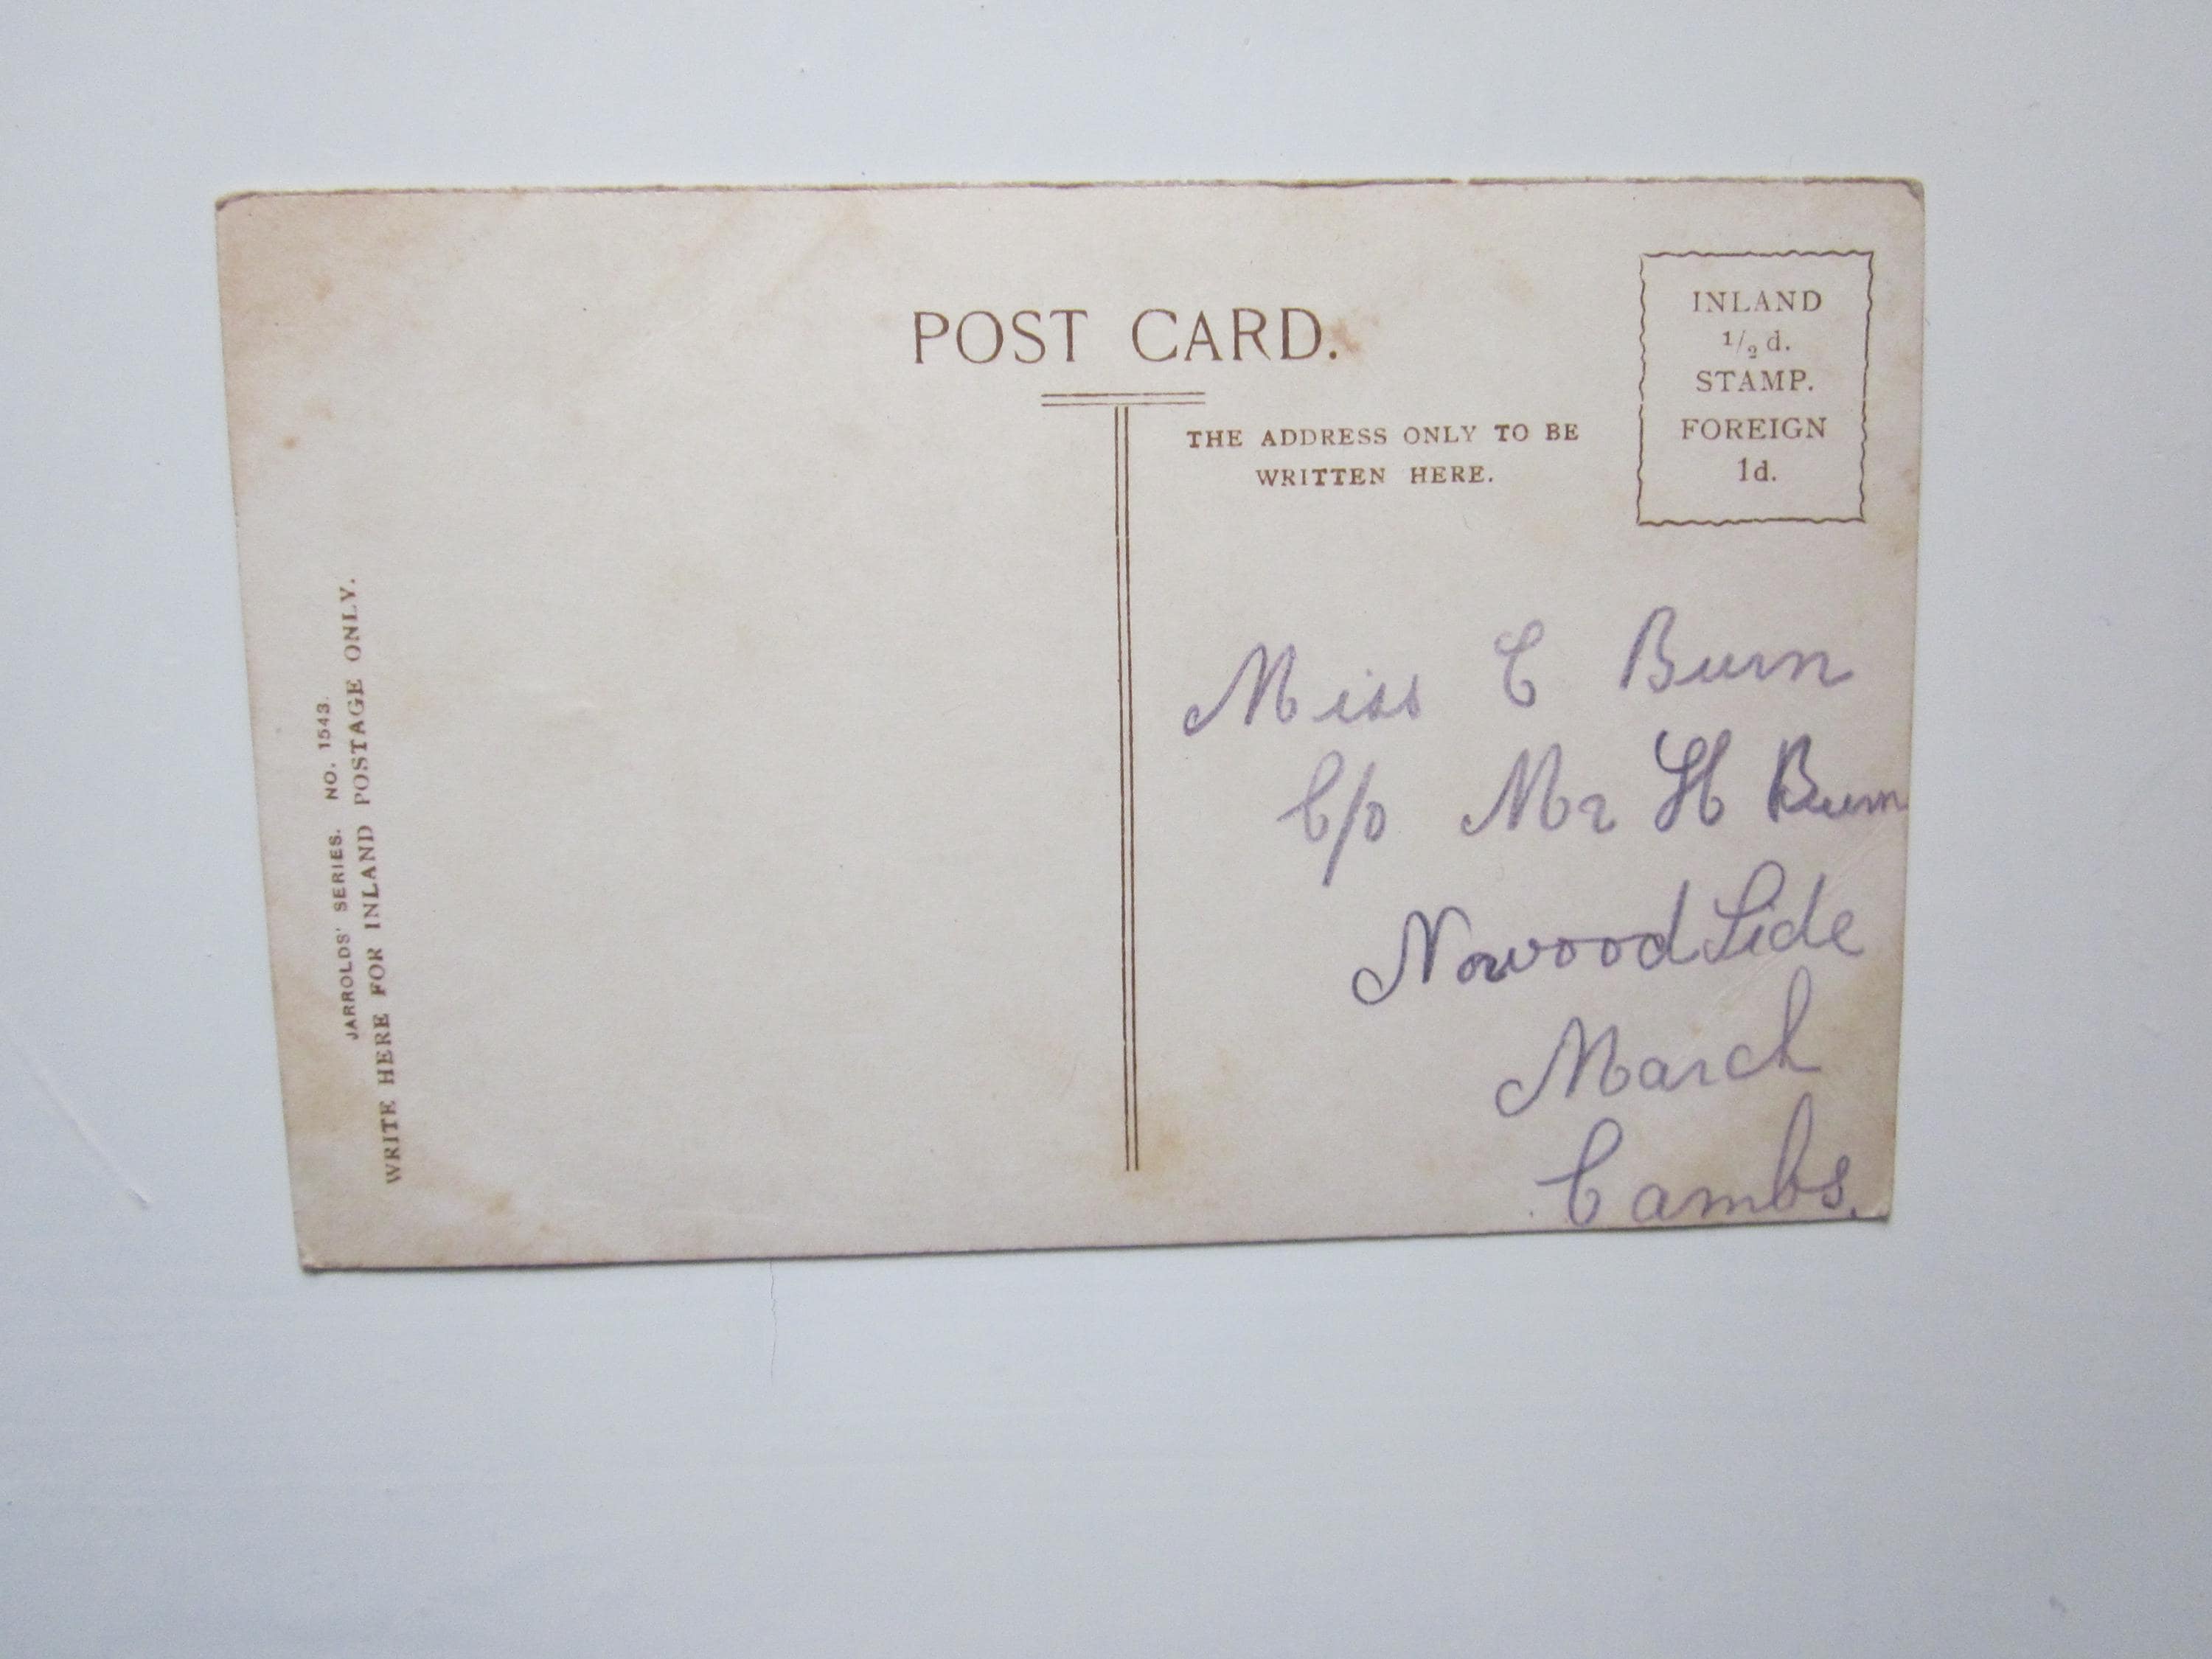 POST CARD.
THE ADDRESS ONLY TO BE
WRITTEN HERE.
INLAND
1/2 d.
STAMP.
FOREIGN
1d.
JARROLDS' SERIES. NO. 1543.
WRITE HERE FOR INLAND POSTAGE ONLY.
Miss C Burn
C/o Mr H Burn
Norwood Side
March
Cambs.